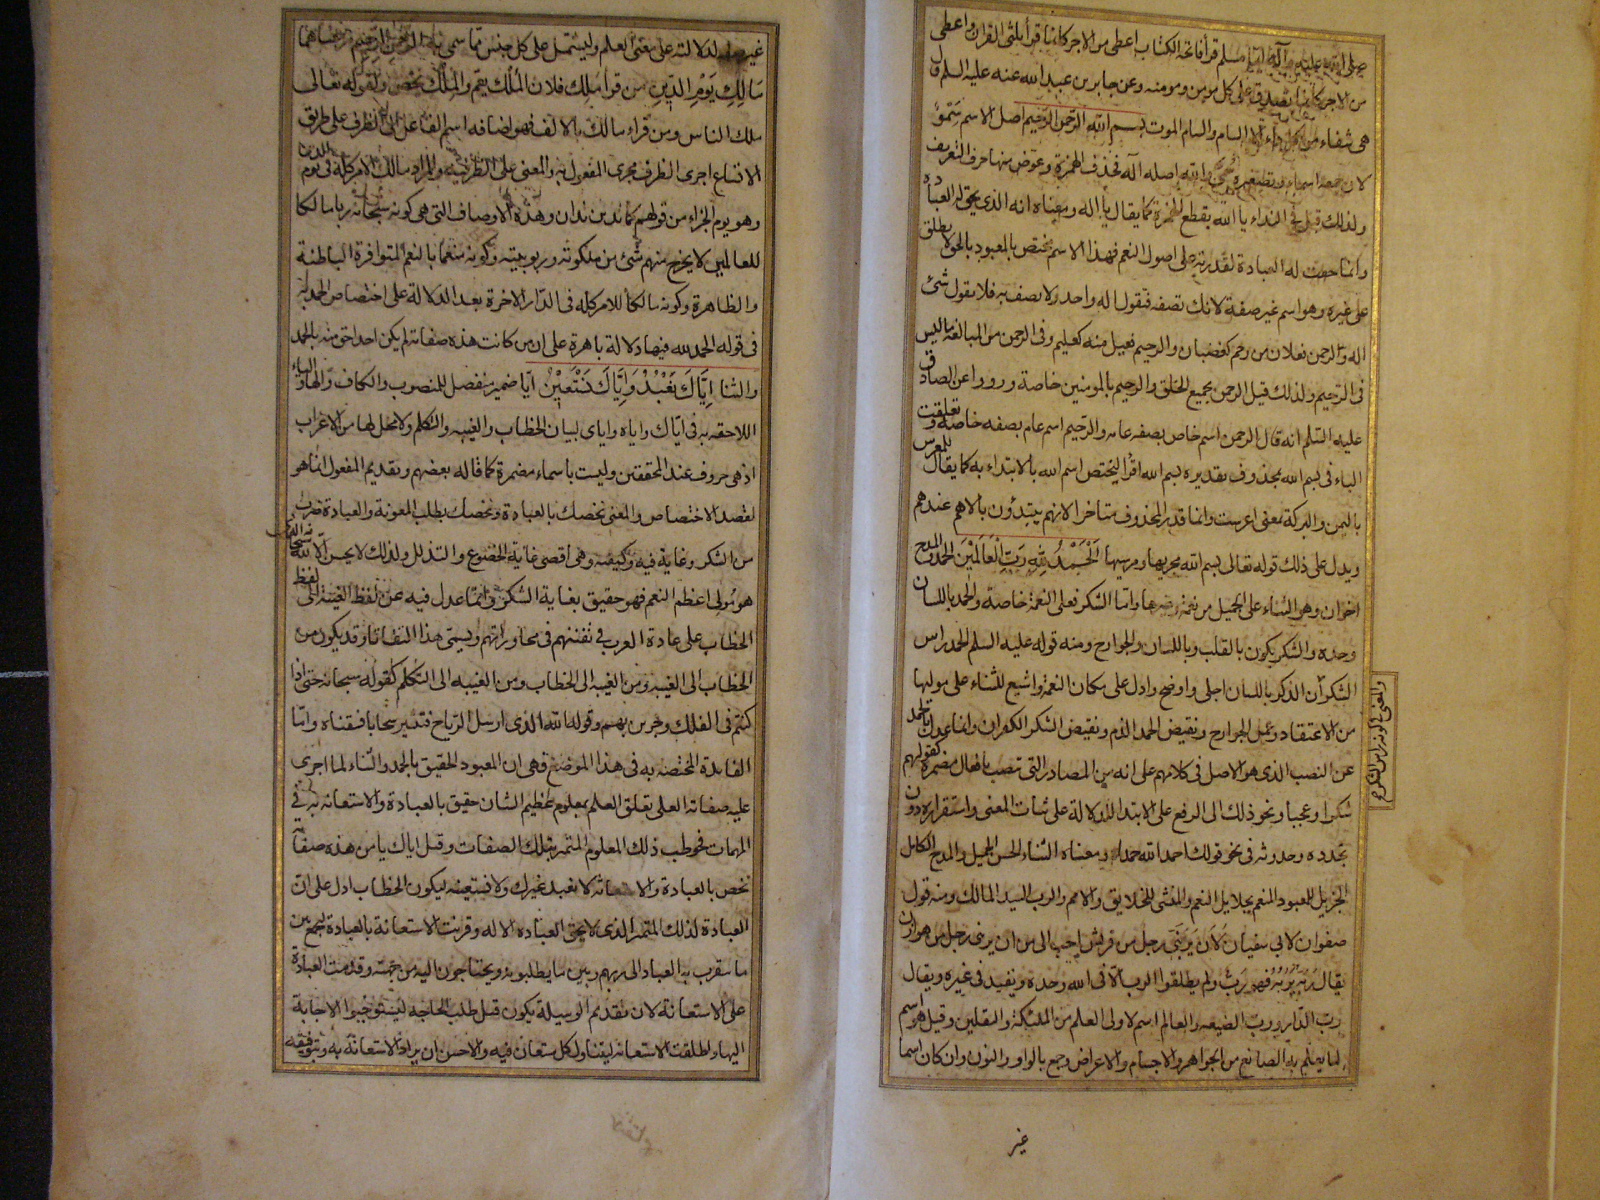 صلى الله عليه وآله ايما مسلم قرأ فاتحة الكتاب اعطى من الاجر كانما قرأ ثلثى القرآن واعطى
من الاجر كانما تصدق على كل مومن ومومنه وعن جابر بن عبد الله عنه عليه السلم قال
هى شفاء من كل داء الا السام والسام الموت بسم الله الرحمن الرحيم اصل الاسم سمو
لان جمعه اسماء وتصغيره سمى والله اصله اله فحذف الهمزة وعوض منها حرف التعريف
ولذلك قيل فى النداء يا الله بقطع الهمزة كما يقال يا اله ومعناه انه الذى يحق له العبادة
وانما حقت له العبادة لقدرته على اصول النعم فهذا الاسم مختص بالمعبود بالحق لا يطلق
على غيره وهو اسم غير صفة لانك تصفه فتقول اله واحد ولا تصف به فلا تقول شئ
اله والرحمن فعلان من رحم كغضبان والرحيم فعيل منه كعليم وفى الرحمن من المبالغة ما ليس
فى الرحيم ولذلك قيل الرحمن بجميع الخلق والرحيم بالمومنين خاصة ورووا عن الصادق
عليه السلم انه قال الرحمن اسم خاص بصفه عامه والرحيم اسم عام بصفه خاصة وتعلقت
الباء فى بسم الله بمحذوف تقديره بسم الله اقرأ ليختص اسم الله بالابتداء به كما يقال للمعرس
باليمن والبركة بمعنى اعرست وانما قدر المحذوف متاخرا لانهم يبتدؤن بالاهم عندهم
ويدل على ذلك قوله تعالى بسم الله مجريها ومرسيها اَلْحَمْدُ لِلّهِ رَبِّ الْعَالَمِيْنَ الحمد والمدح
اخوان وهو الثناء على الجميل من نعمة وغيرها واما الشكر فعلى النعمة خاصة والحمد باللسان
وحده والشكر يكون بالقلب وباللسان والجوارح ومنه قوله عليه السلم الحمد راس
الشكر لان الذكر باللسان اجلى واوضح وادل على مكان النعمة واشيع للثناء على موليها
من الاعتقاد وعمل الجوارح ونقيض الحمد الذم ونقيض الشكر الكفران وانما عدل بالحمد
عن النصب الذى هو الاصل فى كلامهم على انه من المصادر التى تنصب بافعال مضمرة كقولهم
شكرا وعجبا ونحو ذلك الى الرفع على الابتدا للدلالة على ثبات المعنى واستقراره دون
تجدده وحدوثه فى نحو قولك احمد الله حمدا ومعناه الثناء الحسن الجميل والمدح الكامل
الجزيل للمعبود المنعم بجلايل النعم والمنشى للخلايق والامم والرب السيد المالك ومنه قول
صفوان لابى سفيان لَاَن يَرُبَّنى رجل من قريش احب الى من ان يربنى رجل من هوازن
يقال رَبَّه يَرُبُّه فهو رَبٌّ ولم يطلقوا الرب الا فى الله وحده ويقيد فى غيره ويقال
رب الدار ورب الضيعه والعالم اسم لاولى العلم من الملئكة والثقلين وقيل هو اسم
لما يعلم به الصانع من الجواهر والاجسام والاعراض وجمع بالواو والنون وان كان اسما
غير
والمعنى فى كونه راس الشكر
غير صفة لدلالته على معنى العلم وليشتمل على كل جنس مما سمى به الرحمن الرحيم
مَالِكِ يَوْمِ الدِّينِ من قرأ مَلِك فلان المُلك يعم والمِلك يخص ولقوله تعالى
ملك الناس ومن قراء مالك بالالف فهو اضافه اسم الفاعل الى الظرف على طريق
الاتساع اجرى الظرف مجرى المفعول به والمعنى على الظرفيه والمراد مالك الامر كله فى يوم الدين
وهو يوم الجزاء من قولهم كما تدين تدان وهذه الاوصاف التى هى كونه سبحانه ربا مالكا
للعالمين لا يخرج منهم شئ من ملكوته وربوبيته وكونه منعما بالنعم المتوافرة الباطنة
والظاهرة وكونه مالكا للامر كله فى الدار الاخرة بعد الدلالة على اختصاص الحمد به
فى قوله الحمد لله فيها دلالة باهرة على ان من كانت هذه صفاته لم يكن احد احق منه بالحمد
والثنا اِيَّاكَ نَعْبُدُ وَاِيَّاكَ نَسْتَعِيْنُ ايّا ضمير منفصل للمنصوب والكاف والهاء والياء
اللاحقه به فى اياك واياه واياى لبيان الخطاب والغيبه والتكلم ولا محل لها من الاعراب
اذ هى حروف عند المحققين وليست باسماء مضمرة كما قاله بعضهم وتقديم المفعول انما هو
لقصد الاختصاص والمعنى نخصك بالعبادة ونخصك بطلب المعونة والعبادة ضرب
من الشكر وغاية فيه وكيفيه وهى اقصى غاية الخضوع والتذلل ولذلك لا يحسن الا لله سبحانه الذى
هو مولى اعظم النعم فهو حقيق بغاية الشكر وانما عدل فيه عن لفظ الغيبة الى لفظ
الخطاب على عادة العرب فى تفننهم فى محاوراتهم ويسمى هذا التفاتا وقد يكون من
الخطاب الى الغيبه ومن الغيبه الى الخطاب ومن الغيبه الى التكلم كقوله سبحانه حتى اذا
كنتم فى الفلك وجرين بهم وقوله الله الذى ارسل الرياح فتثير سحابا فسقناه واما
الفايدة المختصه به فى هذا الموضع فهى ان المعبود الحقيق بالحمد والثناء لما اجرى
عليه صفاته العلى تعلق العلم بمعلوم عظيم الشان حقيق بالعبادة والاستعانه به فى
المهمات فخوطب ذلك المعلوم المتميز بتلك الصفات وقيل اياك يا من هذه صفاته
نخص بالعبادة والاستعانه لا نعبد غيرك ولا نستعينه ليكون الخطاب ادل على ان
العبادة لذلك المتميز الذى لا يحق العباده الا له وقرنت الاستعانة بالعبادة ليجمع بين
ما يتقرب به العباد الى ربهم وبين ما يطلبونه ويحتاجون اليه من جهته وقدمت العبادة
على الاستعانة لان تقديم الوسيلة يكون قبل طلب الحاجه ليستوجبوا الاجابة
اليها واطلقت الاستعانه ليتناول كل مستعان فيه والاحسن ان يراد الاستعانة به وبتوفيقه